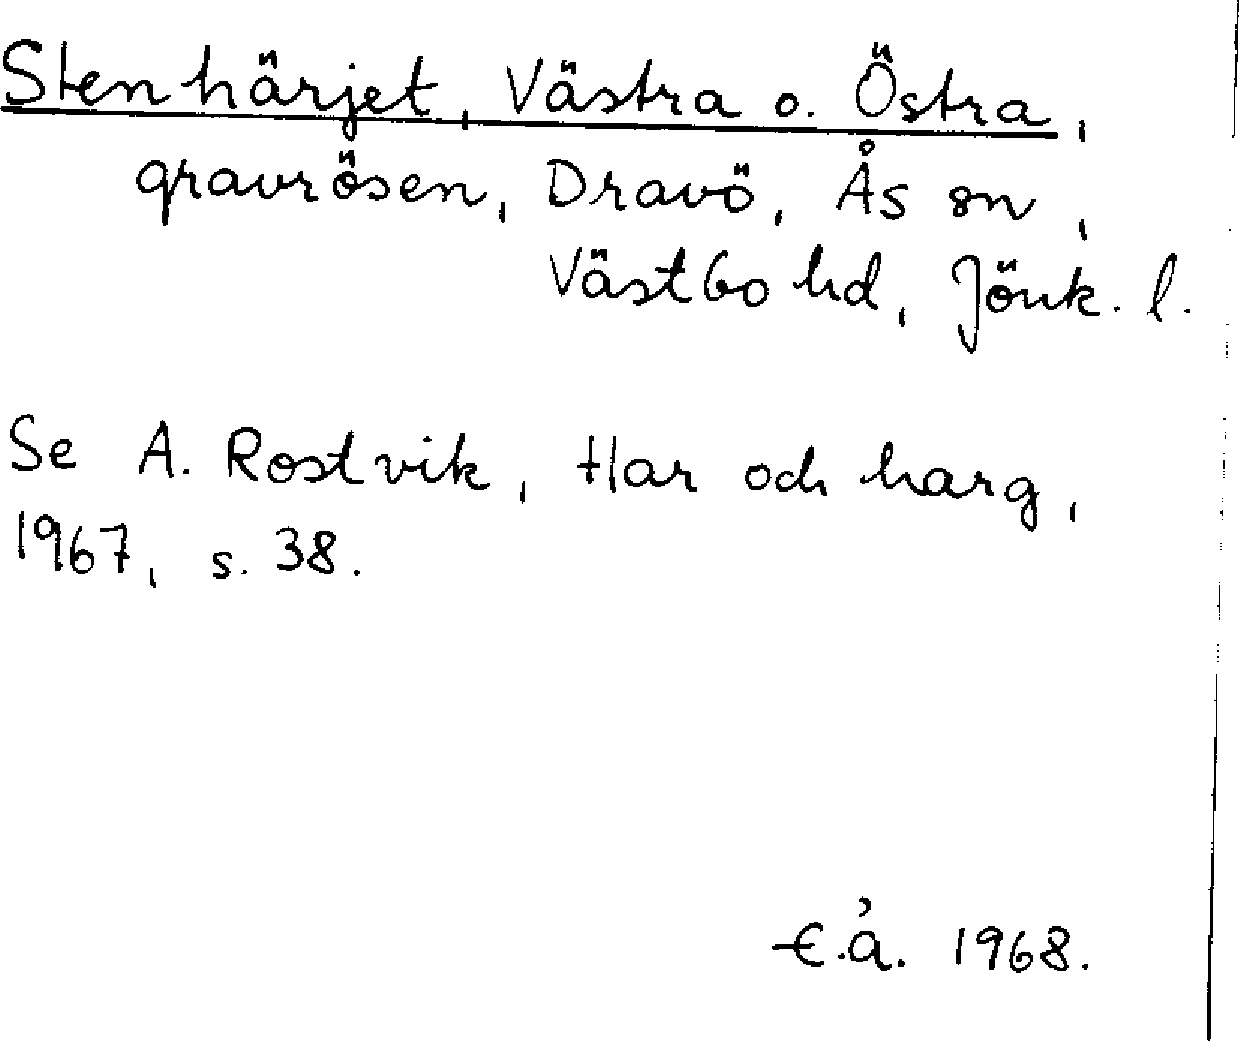 Stenhärjet, Västra o. Östra,
gravrösen, Dravö, Ås sn,
Västbo hd, Jönk. l.
Se A. Rostvik, Har och harg,
1967, s. 38.
E.å. 1968.